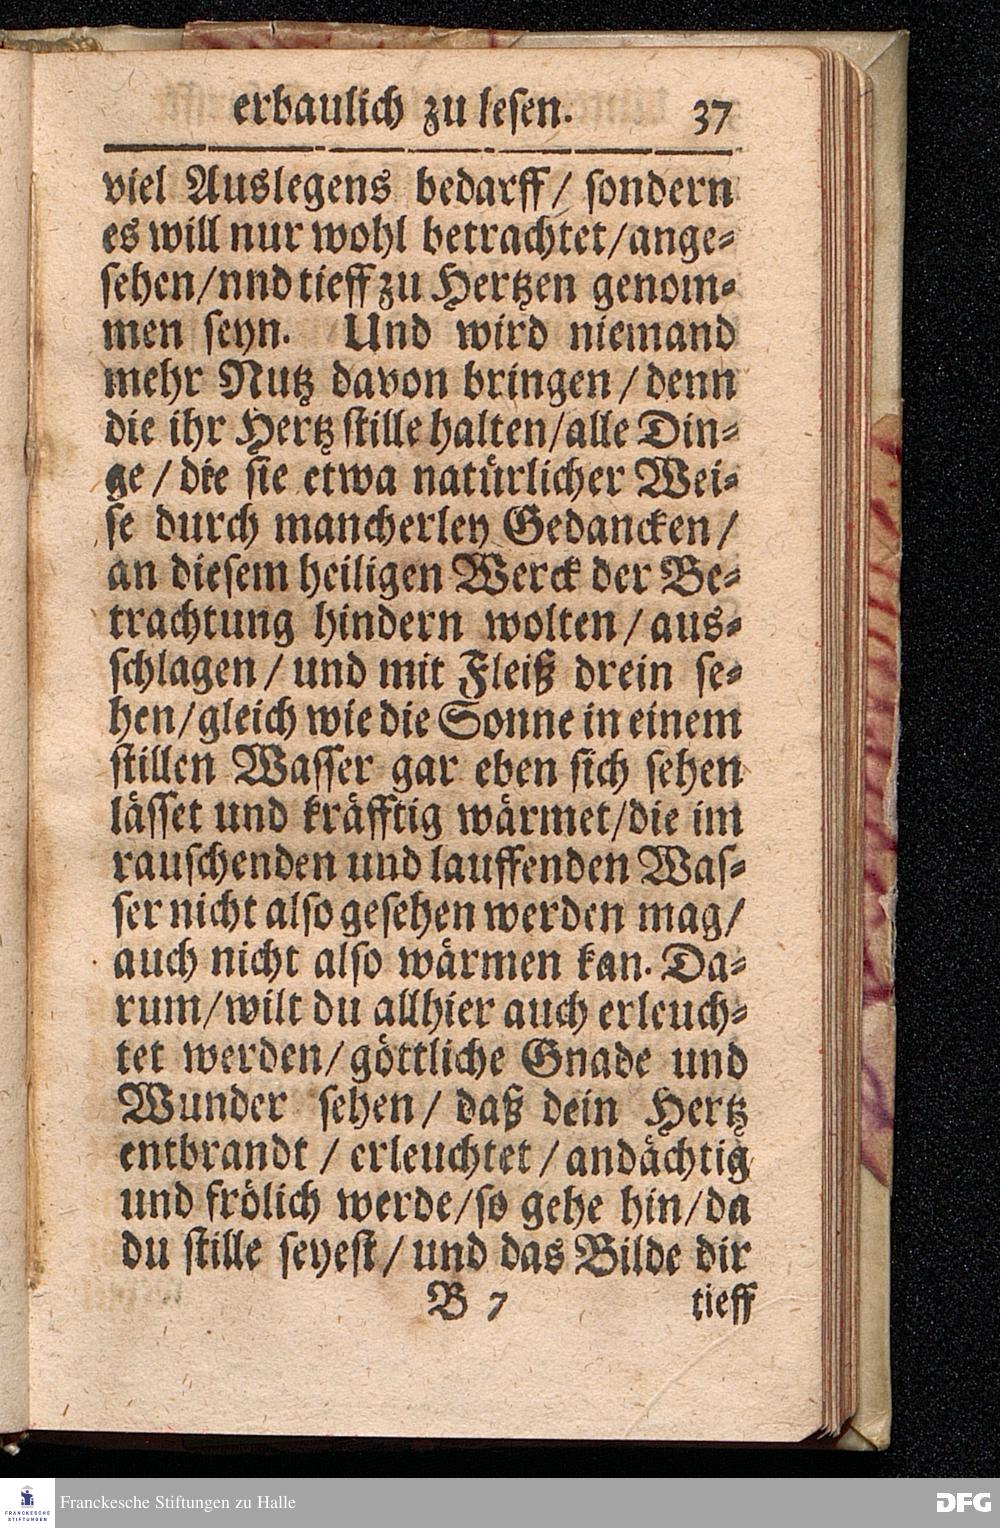 erbaulich zu lesen. 37
viel Auslegens bedarff/ sondern
es will nur wohl betrachtet/ange-
sehen/nnd tieff zu Hertzen genom-
men seyn. Und wird niemand
mehr Nutz davon bringen/denn
die ihr Hertz stille halten/alle Din-
ge/die sie etwa natürlicher Wei-
se durch mancherley Gedancken/
an diesem heiligen Werck der Be-
trachtung hindern wolten/aus-
schlagen/und mit Fleiß drein se-
hen/gleich wie die Sonne in einem
stillen Wasser gar eben sich sehen
lässet und kräfftig wärmet/die im
rauschenden und lauffenden Was-
ser nicht also gesehen werden mag/
auch nicht also wärmen kan. Da-
rum/wilt du allhier auch erleuch-
tet werden/göttliche Gnade und
Wunder sehen/daß dein Hertz
entbrandt/erleuchtet/andächtig
und frölich werde/so gehe hin/da
du stille seyest/und das Bilde dir
B 7 tieff
FRANCKESCHE STIFTUNGEN Franckesche Stiftungen zu Halle DFG